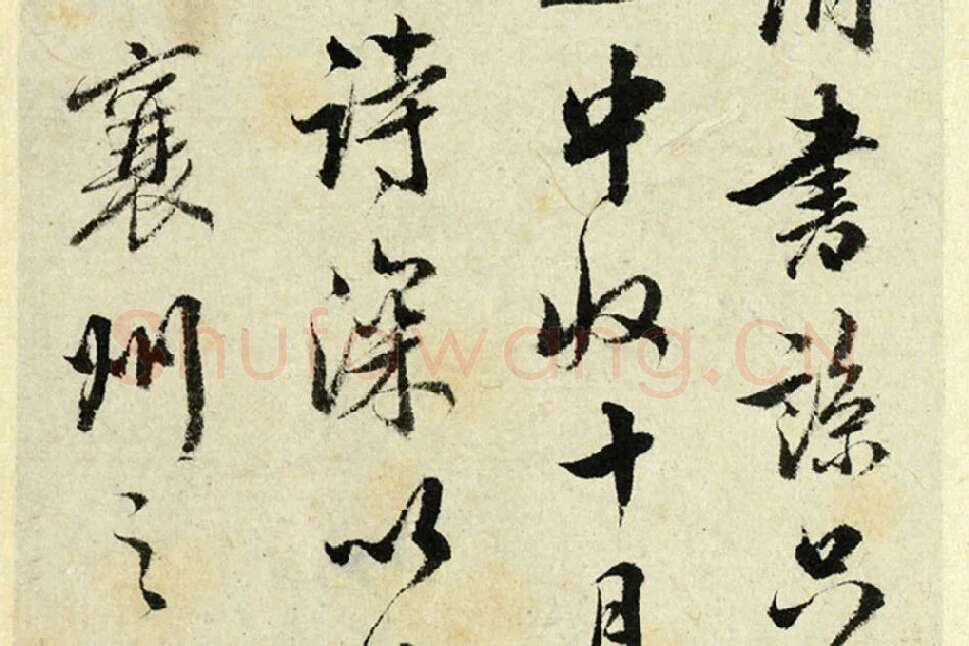 書只
中收十月
詩深以
襄州之
Shufawang.CN